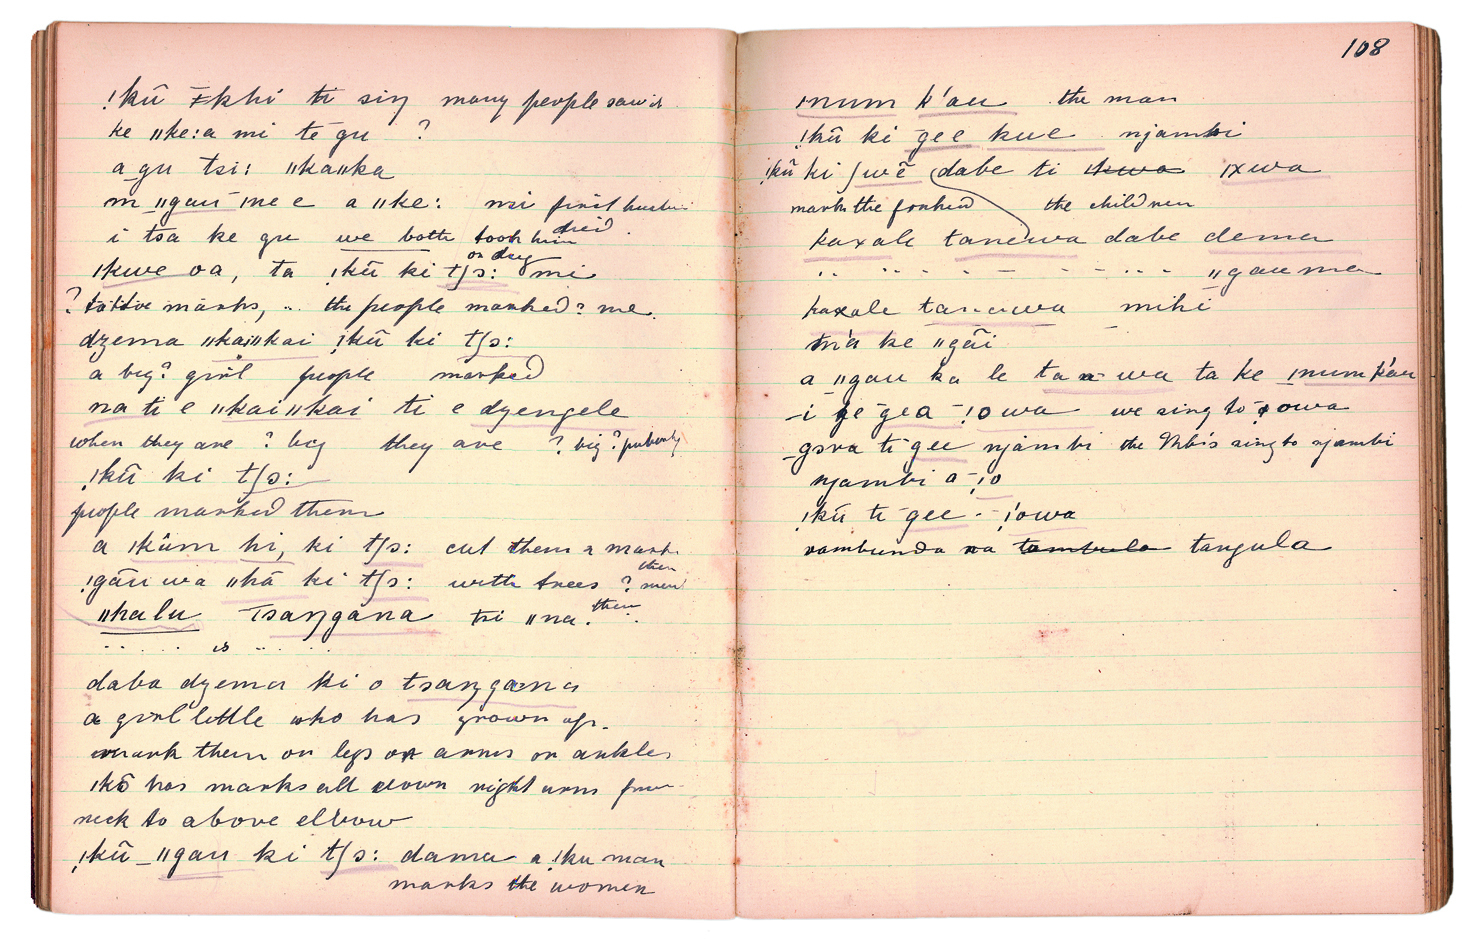 !kū ǂkhi ti siŋ many people saw it
ke ǁke:a mi te gu ?
a gu tsi: ǁkaǁka
m ǁgau me e a ǁke: mi first husb
died
i tsa ke gu we both took him
or dug
ǀkwe oa, ta !kū ki tʃs: mi
? tattoe marks, .. the people marked? me.
dzema ǁkaiǁkai !kū ki tʃs:
a big? girl people marked
na ti e ǁkaiǁkai ti e dzengele
when they are ? big they are ? big? puberty
!kū ki tʃs:
people marked them
a ǀkūm hi, ki tʃs: cut them a mark
then
!gāu wa ǁkā ki tʃs: with trees ? men
ǁkalu Tsaŋgana tsi ǁna. then
. . . . . is .. . . .
daba dzema ki o tsaŋgana
a girl little who has grown up.
mark them on legs or arms or ankles
ǀkō has marks all down right arm from
neck to above elbow
!kū ǁgau ki tʃs: dama a !ku man
marks the women
108
ǀnum k'au the man
!kū ki gee kue njambi
!kū ki ʃwē dabe ti ǀkwa ǀxwa
marks the forhead the children
kaxale tanewa dabe dema
.. .. .. .. – – .. .. .. ǁgau ma
kaxale tanawa mihi
m'a ke ǁgāi
a ǁgau ka le tanawa ta ke ǀnum k'au
–i ge gea –!owa we sing to !owa
gova ti gee njambi the Mbis sing to njambi
njambi a –!o
!kū ti gee – !owa
vambunda na tambula tangula